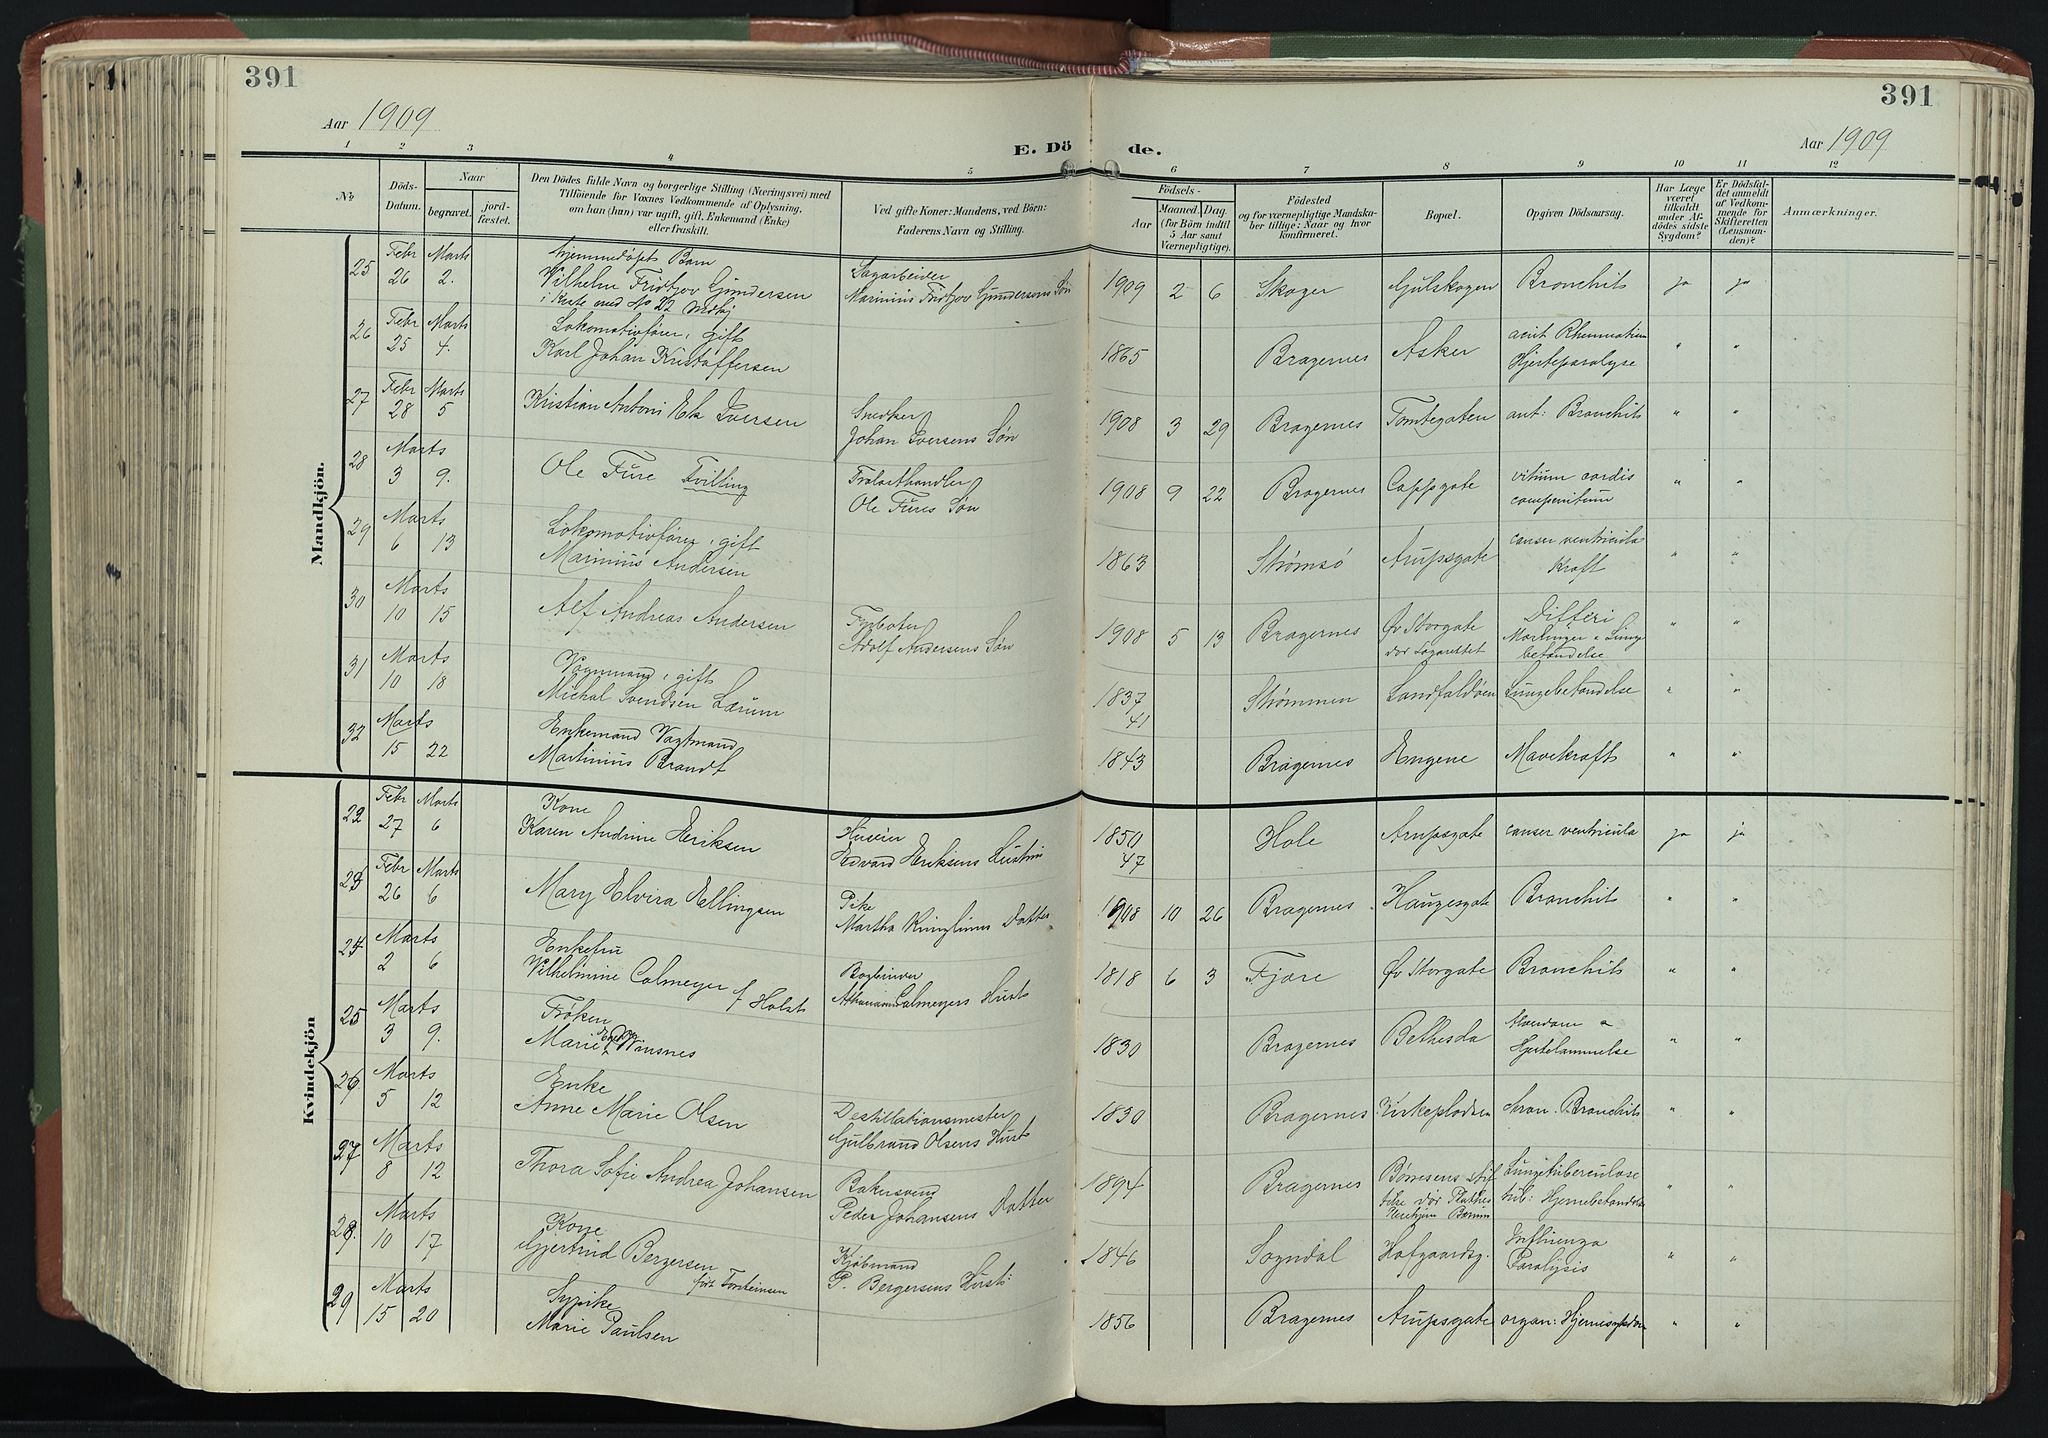 391
391
Aar 1909
E. Dö
de.
Aar 1909
1
2
3
4
5
6
7
8
9
10
11
12
No
Döds-
Datum.
Naar
begravet.
jord-
fæstet.
Den Dödes fulde Navn og borgerlige Stilling (Næringsvei) med
Tilföiende for Voxnes Vedkommende af Oplysning,
om han (hun) var ugift, gift, Enkemand (Enke)
eller fraskilt.
Ved gifte Koner: Mandens, ved Börn:
Faderens Navn og Stilling.
Födsels-
Aar
Maaned.
Dag.
(for Börn indtil
5 Aar samt
Værnepligtige).
Födested
og for værnepligtige Mandska-
ber tillige: Naar og hvor
konfirmeret.
Bopæl.
Opgiven Dödsaarsag.
Har Læge
været
tilkaldt
under Af-
dödes sidste
Sygdom?
Er Dödsfal-
det anmeldt
af Vedkom-
mende for
Skifteretten
(Lensman-
den)?
Anmærkninger.
Mandkjön.
25 Febr 26 Marts 2. Hjemmedøpt Barn
Vilhelm Fridtjov Gundersen
i Kiste med No 22
Sagarbeider
Marinius Fridtjov Gundersens Søn
1909 2 6 Skoger Gulskogen Bronchit ja ja
26 Febr 25 Marts 4. Lokomotivfører, gift
Karl Johan Kristoffersen
1865 Bragernes Asker
Hjerteparalyse " "
27 Febr 28 Marts 5 Kristian Antoni Ek Iversen
Snedker
Johan Iversens Søn
1908 3 29 Bragernes Tomtegaten Bronchit " "
28 Marts 3 9. Ole Fure Tvilling
Trælasthandler
Ole Fures Søn
1908 9 22 Bragernes Cappsgate vitium cordis
" "
29 Marts 6 13 Lokomotivfører, gift
Marinius Andersen
1863 Strømsø Arupsgate canser ventricula
Kraft " "
30 Marts 10 15 Alf Andreas Andersen
Fyrbøter
Adolf Andersens Søn
1908 5 13 Bragernes Øv Storgate
død Lazarettet
Difteri
betændelse " "
31 Marts 10 18 Vognmand, gift
Michal Svendsen Lærum
1837
41 Strømmen Landfaldøen Lungebetændelse " "
32 Marts 15 22 Enkemand Vagtmand
Martinius Brandt
1843 Bragernes Engene Mavekræft " "
Kvindekjön
22 Febr 27 Marts 6 Kone
Karen Andrine Eriksen
Huseier
Edvard Eriksens Hustru
1850
47 Hole Arupsgate canser ventricula ja ja
23 Febr 26 Marts 6 Mary Elvira Ellingsen
Pike
Martha Datter
1908 10 26 Bragernes Haugesgate Bronchit " "
24 Marts 2 6 Enkefru
Vilhelmine Calmeyer f Holst
Bogbinder
Calmeyers Hust
1818 6 3 Fjære Øv Storgate Bronchit " "
25 Marts 3 9. Frøken
Marie Winsnes
1830 Bragernes Bethesda Alderdom &
Hjertelammelse " "
26 Marts 5 12 Enke
Anne Marie Olsen
Destillationsmester
Gulbrand Olsens Hust
1830 Bragernes Kirkepladsen kron. Bronchit " "
27 Marts 8 12 Thora Sofie Andrea Johansen
Bakersvend
Peder Johansens Datter
1894 Bragernes Børresens Stif
telse død
Lungetuberculose
tub: Hjernebetændelse " "
28. Marts 10 17 Kone
Gjertrud Bergersen
født Torsteinsen
Kjøbmand
P. Bergersens Hust:
1846 Sogndal Hofgaardsg. Influenza
Paralysis " "
29 Marts 15 20 Sypike
Marie Paulsen
1856 Bragernes Arupsgate organ: Hjernesygdom " "